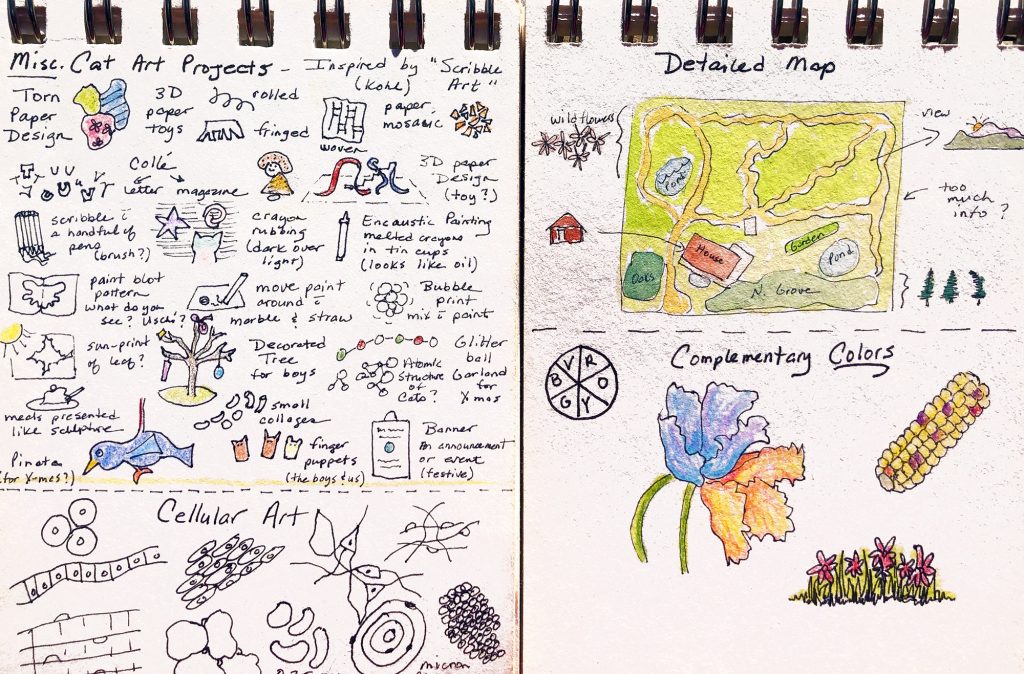 Misc. Cat Art Projects - Inspired by "Scribble
(Kohl) Art"
Torn
Paper
Design
3D
paper
toys
rolled
fringed
woven
paper
mosaic
Collé
letter magazine
3D paper
Design
(toy?)
scribble c̄
a handful of
pens
(brush?)
crayon
rubbing
(dark over
light)
Encaustic Painting
melted crayons
in tin cups
(looks like oil)
paint blot
pattern
what do you
see? Uschi?
move paint
around c̄
marble & straw
Bubble
print
mix c̄ paint
sun-print
of leaf?
Decorated
Tree
for boys
Glitter
ball
Garland
for
Xmas
Atomic
structure
of
Cats?
meats presented
like sculpture
small
collages
Pinata
(for X-mas?)
finger
puppets
(the boys & us)
Banner
An announcement
or event
(festive)
Cellular Art
micron
Detailed Map
wildflowers
view
Pond
too
much
info?
House
Garden
Pond
Oaks
N. Grove
Complementary Colors
V R
B O
G Y